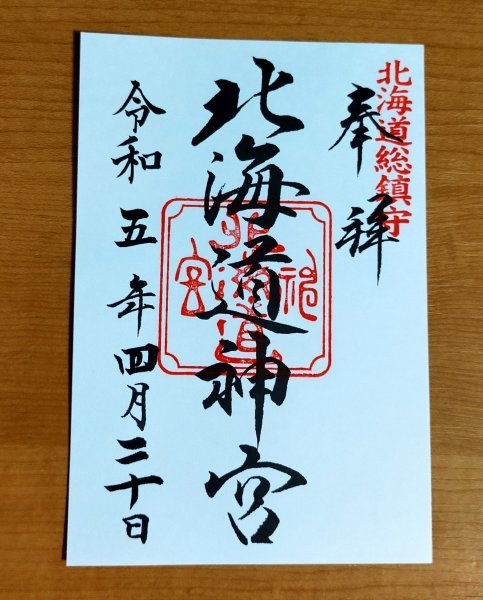 北海道総鎮守
奉拝
北海道神宮
北海道神宮
令和五年四月二十日